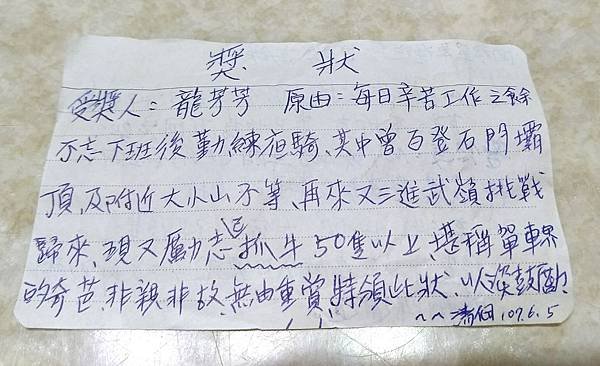 獎 狀
受獎人：龍芳芳 原由：每日辛苦工作之餘
不忘下班後勤練夜騎、其中曾百登石門壩
頂、及附近大小山不等、再來又三進武嶺挑戰
歸來、現又勵志已抓牛50隻以上、堪稱單車界
的奇芭、非親非故、無由重賞、特頒此狀、以茲鼓勵、
～～ 107.6.5